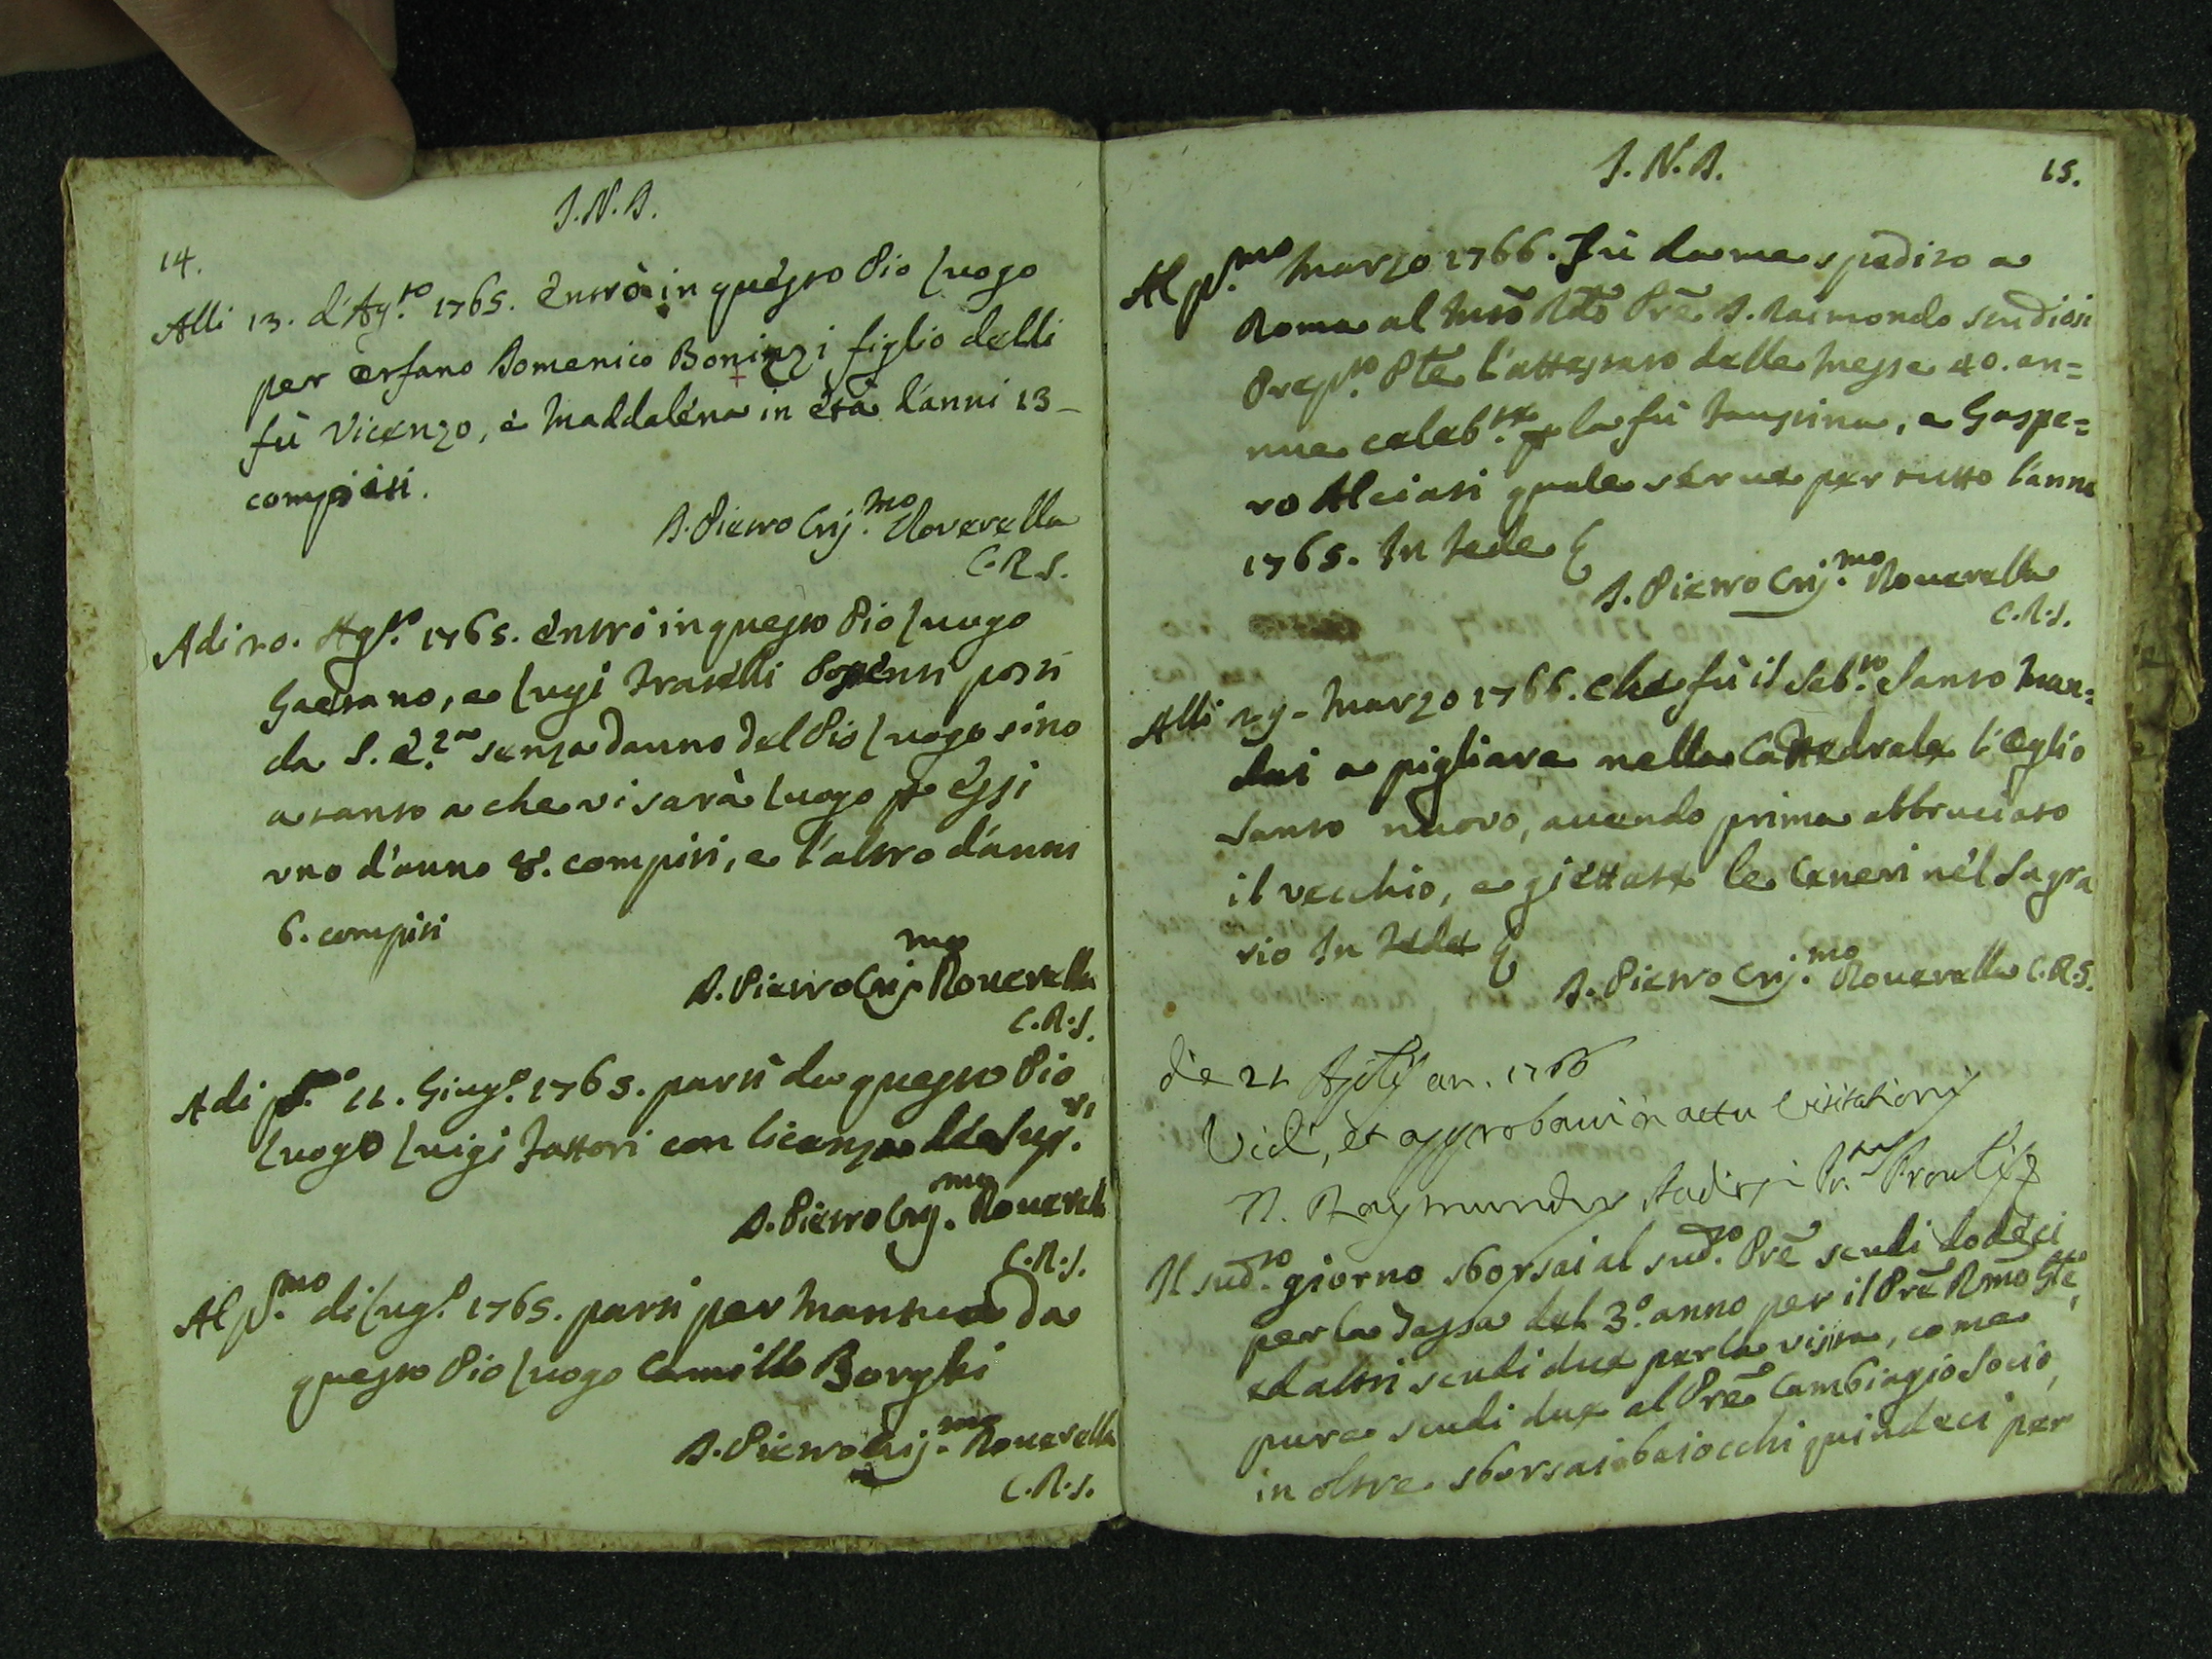 J.N.D.
14.
Alli 13. d'Ag.to 1765. Entrò in questo Pio Luogo
per Orfano Domenico Boninzi figlio delli
fù Vicenzo, e Maddalena in età d'anni 13-
compiti.
D. Pietro Crij.mo Roverella
C.R.S.
Adi 20. Ag.to 1765. entrò in questo Pio Luogo
Gaetano, e Luigi Fratelli posti
da S. E.za senza danno del Pio Luogo sino
a tanto a che vi sarà luogo p essi
uno d'anno 8. compiti, e l'altro d'anni
6. compiti
D. Pietro Crij.mo Roverella
C.R.S.
Adi 11. Giug.o 1765. partì da questo Pio
Luogo Luigi Fattori con licenza de Sup.ri
D. Pietro Crij.mo Roverella
C.R.S.
Al p.mo di Lug.o 1765. partì per Mantua da
questo Pio Luogo Camillo Borghi
D. Pietro Crij.mo Roverella
C.R.S.
J.N.D.
15.
Al p.mo Marzo 1766. Fù da me spedito a
Roma al Prē D. Raimondo Studiosi
Prep.to l'attestato delle Messe 40. an=
nue celeb.te p la fù, e Gaspe=
ro Alciati quale serve per tutto l'anno
1765. In fede
D. Pietro Crij.mo Roverella
C.R.S.
Alli 29- Marzo 1766. che fù il Sab.to Santo Man=
dai a pigliare nella Cattedrale l'Oglio
Santo nuovo, avendo prima abbruciato
il vecchio, e giettate le Ceneri nel Sagra
rio In fede
D. Pietro Crij.mo Roverella C.R.S.
die 21 an. 1766
Vidi, et approbavi in actu Visitationis
D. Raymundus
Il sud.to giorno sborsai al sud.to Prē scudi dodeci
per la Tassa del 3.o anno per il Prē Rmō Gle,
ed altri scudi due per la visita, come
pure scudi due al Prē Cambiagio Socio,
in oltre sborsai baiocchi quindeci per